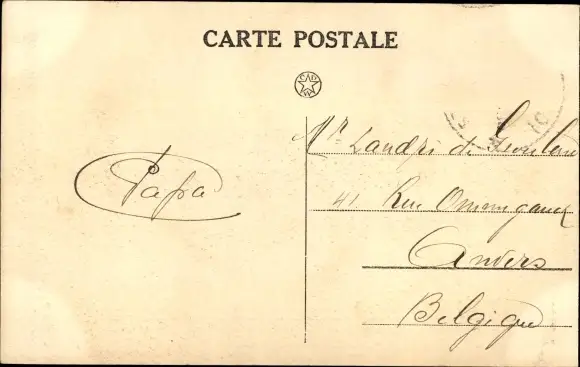 CARTE POSTALE
Papa
Mr Landri de
41 Rue Ommeganck
Anvers
Belgique